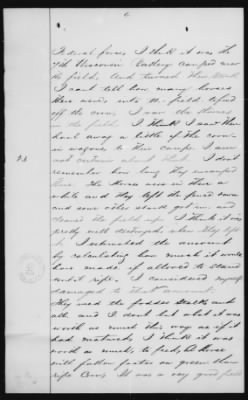 6
Federal forces. I think it was the
7th Wisconsin Battery camped near
the field, and turned their stock
I cant tell how many horses
there were into the field & fed
off the corn, I saw the horses
in the field. I think I saw them
haul away a little of the corn
in wagons to their camp. I am
not certain about that. I dont
remember how long they remained
there. The horses were in there a
while and they left the fence down
and some cattle got in and
cleaned the field up. I think it was
pretty well destroyed when they left
it. I estimated the amount
by calculating how much it would
have made if allowed to stand
until ripe. I considered myself
damaged to that amount.
They used the fodder stalks and
all and I dont but what it was
worth as much this way as if it
had matured. I think it was
worth as much, to feed, as horses
will fatten faster on green than
ripe corn. It was a very good field